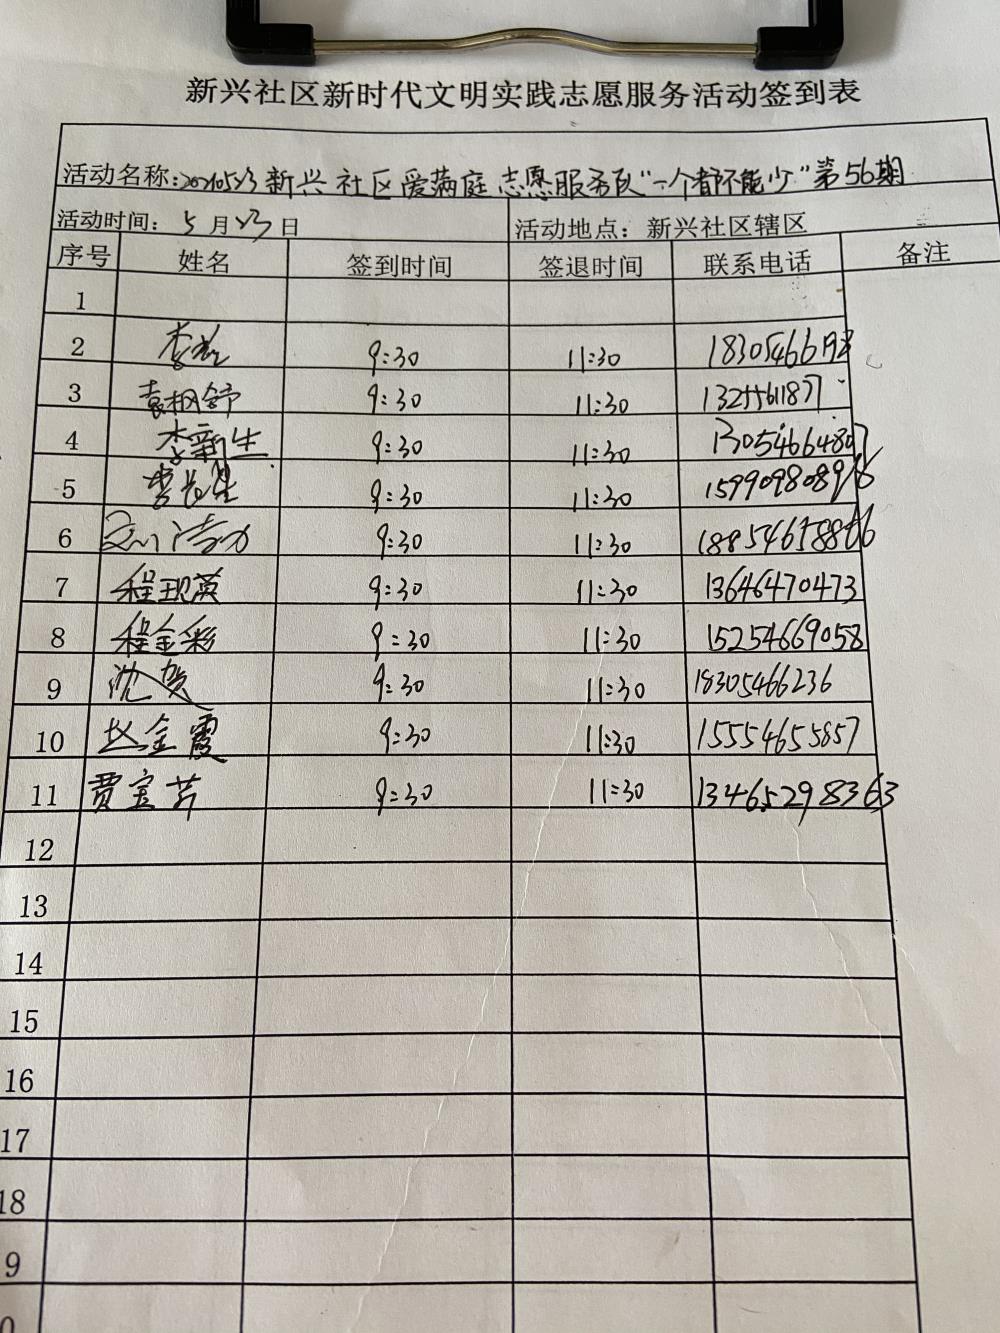 新兴社区新时代文明实践志愿服务活动签到表
活动名称:20210523新兴社区爱满庭志愿服务队"一个都不能少"第56期
活动时间: 5月23日 活动地点: 新兴社区辖区
序号 姓名 签到时间 签退时间 联系电话 备注
1
2 9:30 11:30
3 袁枫舒 9:30 11:30 13255611871
4 李新生 9:30 11:30 13054664807
5 9:30 11:30 15990980898
6 9:30 11:30
7 程现英 9:30 11:30 13646470473
8 程金彩 9:30 11:30 15254669058
9 沈贺 9:30 11:30 18305466236
10 赵金霞 9:30 11:30 15554655857
11 贾宝芹 9:30 11:30 13465298363
12
13
14
15
16
17
18
9
0